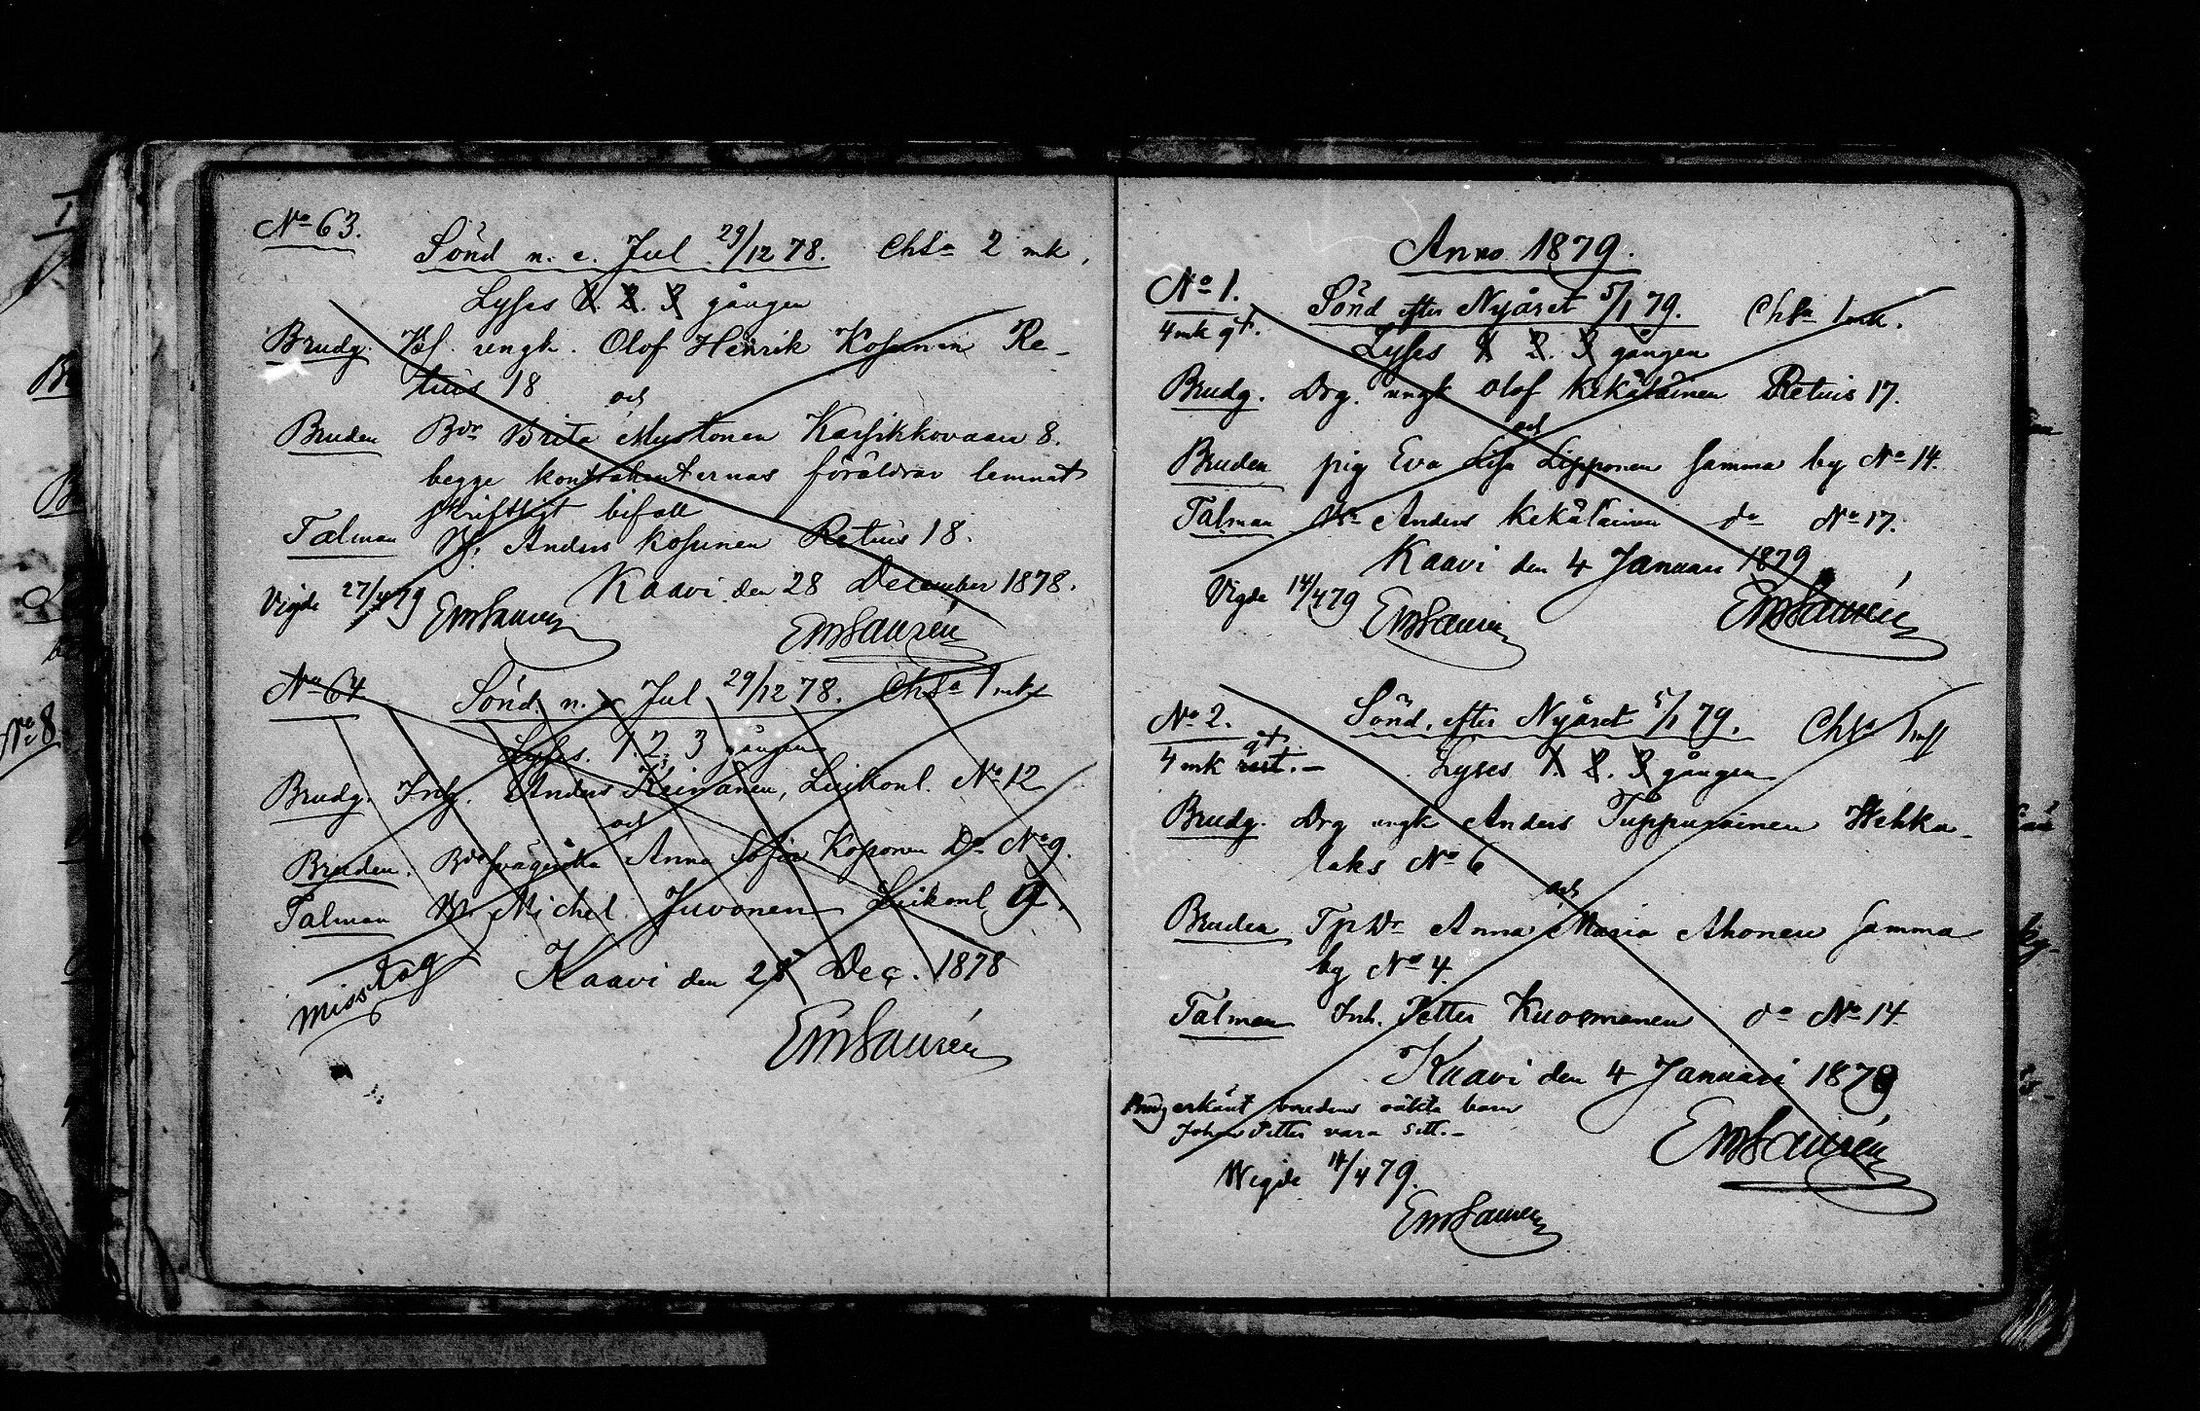 No 63.
Sönd n. e. Jul 29/12 78. Chsa 2 mk.
Lyses 1. 2. 3 gången
Brudg. ungk. Olof Henrik Kosunen Re-
tuis 18
och
Bruden Bdr Brita Mustonen Karsikkovaara 8.
begge kontrahenternas föräldrar lemnat
skriftligt bifall
Talman Anders Kosunen Retuis 18.
Kaavi den 28 December 1878.
Vigde 27/4 79 EmSaurén
EmSaurén
No 64
Sönd. n. e Jul 29/12 78. Chsa 1 mk
Lyses. 1. 2. 3 gången
Brudg. Inh. Anders Keinänen, Luikonl. No 12
och
Bruden. Anna Sofia Koponen Do No 9.
Talman Michel Juvonen Luikonl 9.
Kaavi den 28 Dec. 1878
misstag
EmSaurén
Anno 1879.
No 1.
Sönd efter Nyåret 5/1 79. Chsa 1 mk.
4 mk gt.
Lyses 1. 2. 3 gången
Brudg. Drg. ungk Olof Kekäläinen Retuis 17.
och
Bruden pig Eva Lisa Lipponen samma by No 14.
Talman Anders Kekäläinen do No 17.
Kaavi den 4 Januari 1879
Vigde 14/4 79 EmSaurén
EmSaurén
No 2.
Sönd. efter Nyåret 5/1 79. Chsa 1 mk
gt
4 mk rest.-
Lyses 1. 2. 3 gången
Brudg. Drg ungk Anders Tuppurainen Wehka-
laks No 6
och
Bruden TpDr Anna Maria Ahonen samma
by No 4.
Talman Inh. Petter Kuosmanen do No 14.
Kaavi den 4 Januari 1879
Brudg erkänt brudens oäkta barn
Johan Petter vara sitt.-
EmSaurén
Wigde 14/4 79.
EmSaurén
No 8